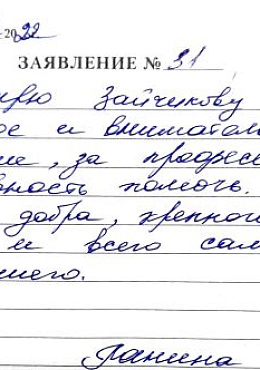 2022
ЗАЯВЛЕНИЕ № 31
рю Зайчикову
ое и внимател
ие, за профес
вность помочь.
добра, крепког
и всего сам
шего.
Панина